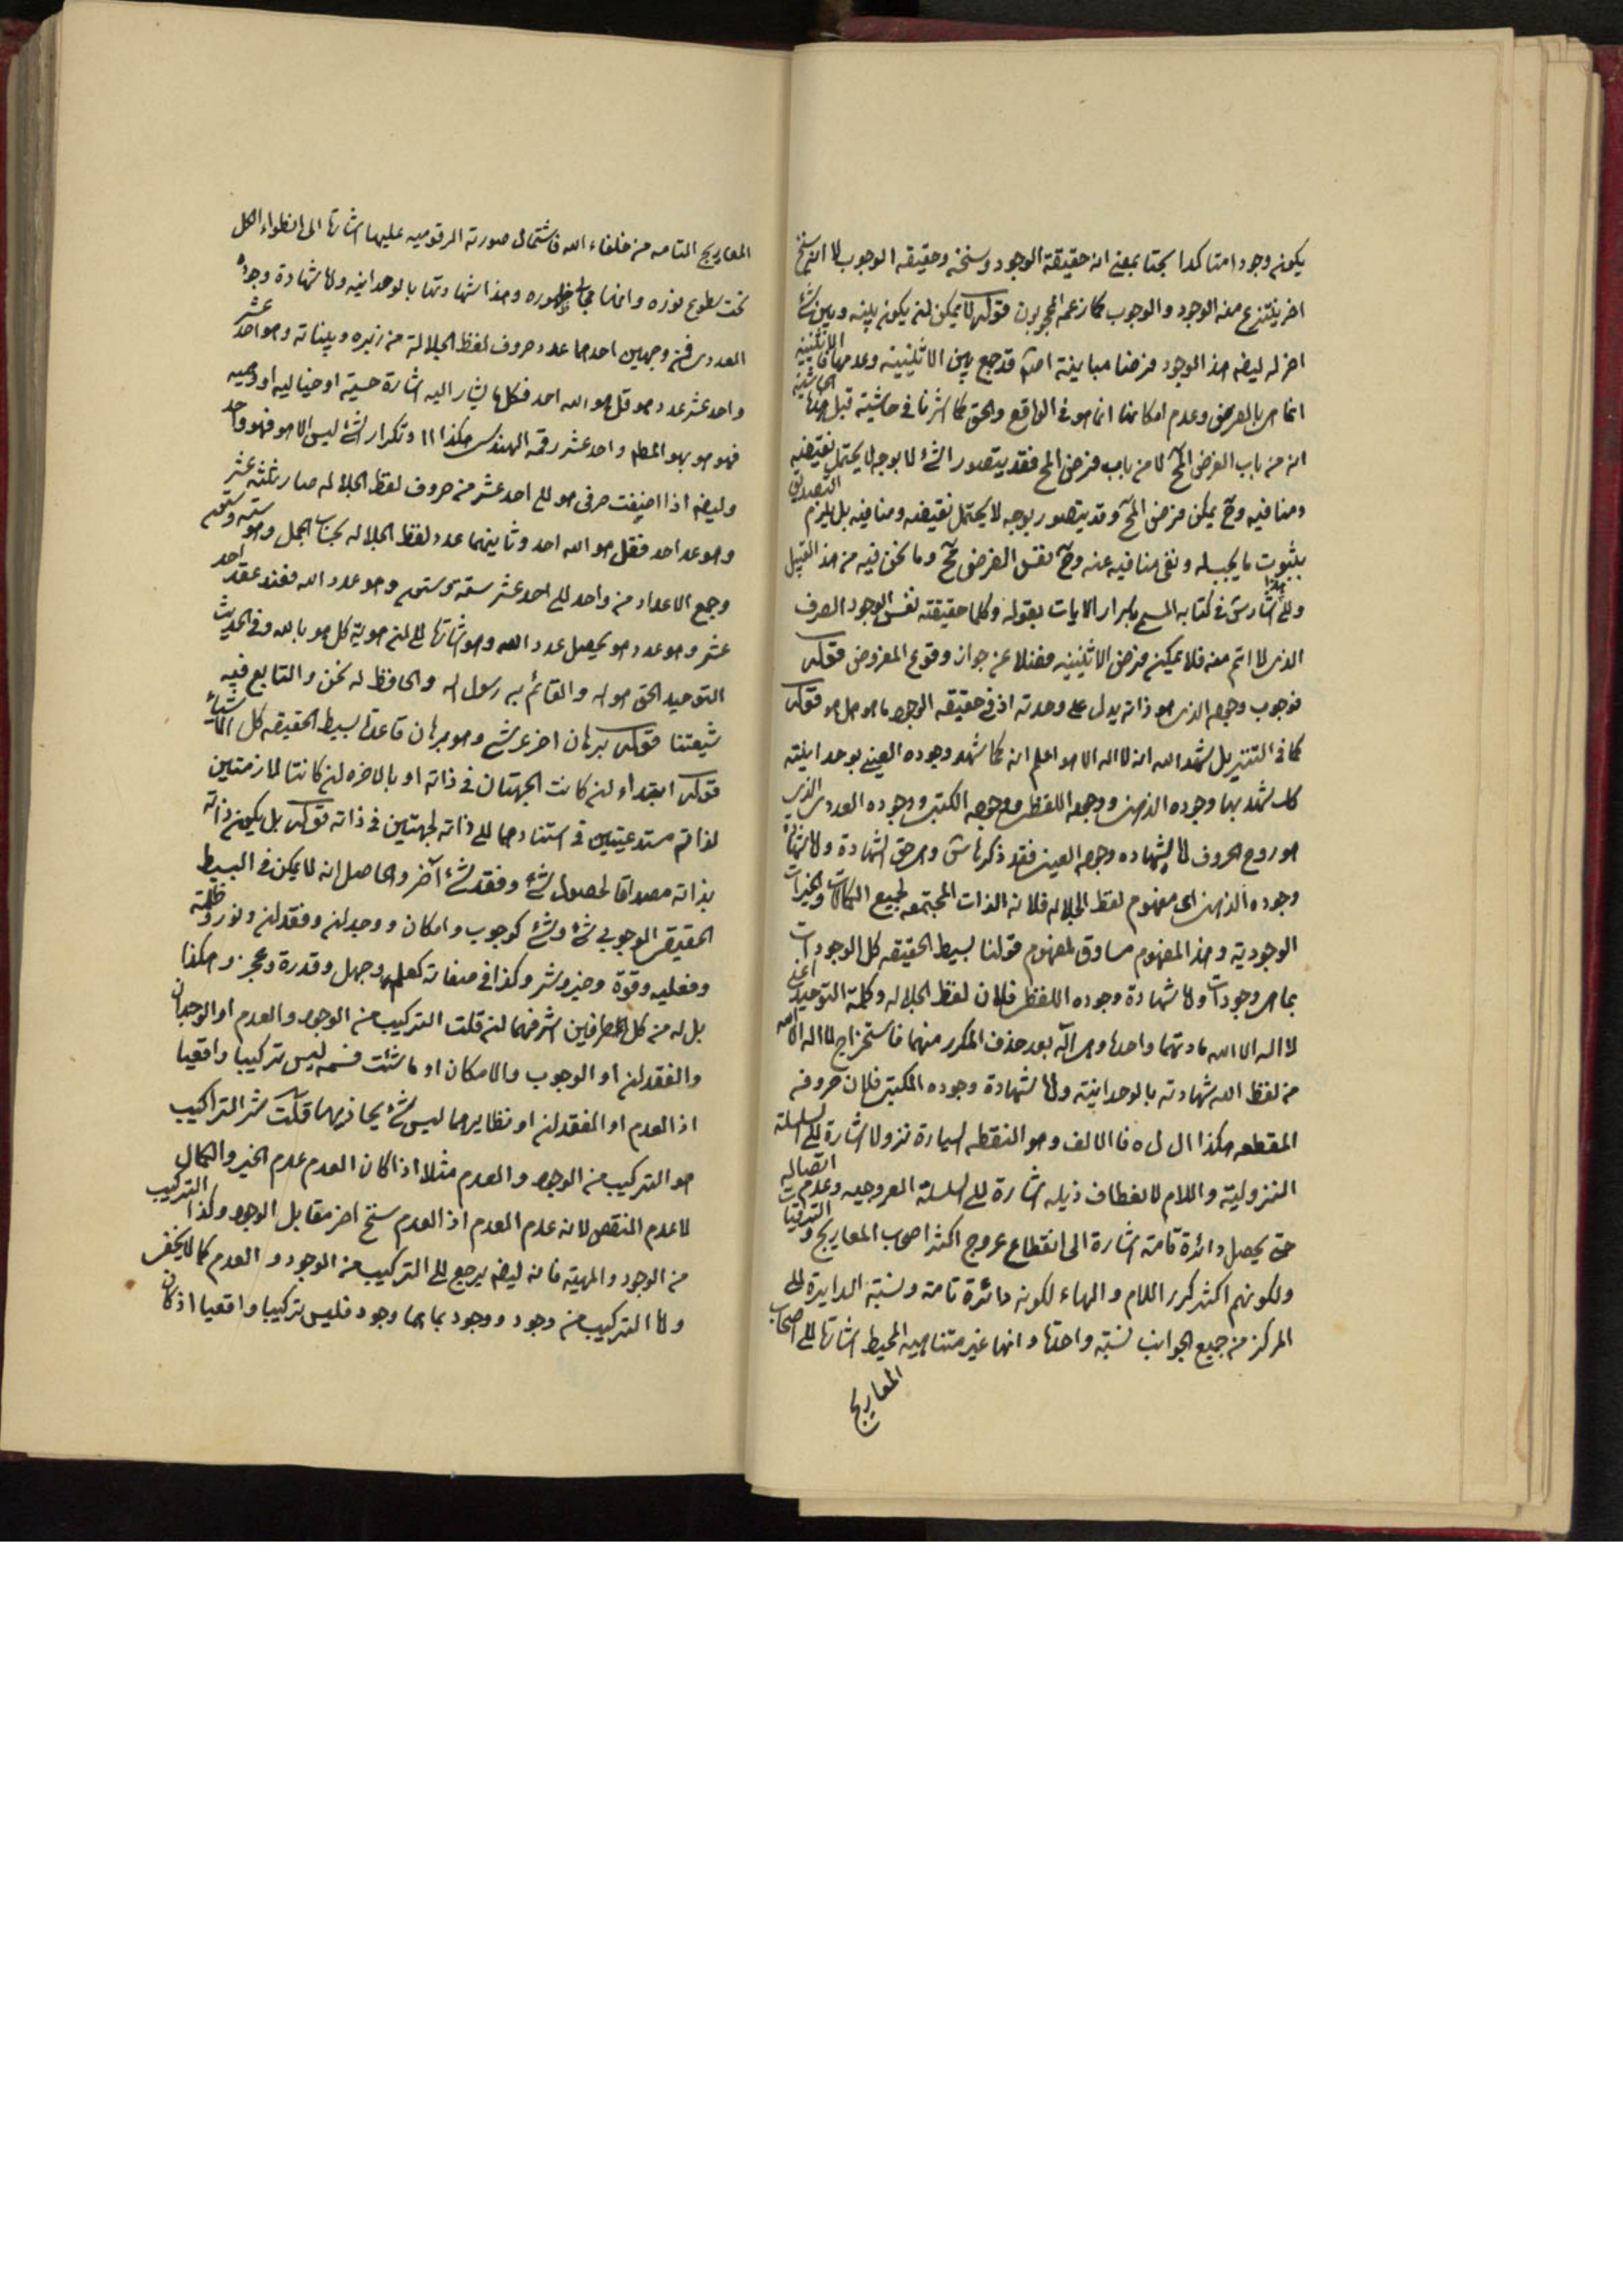 يكون وجودا متاكدا بحتا بمعنى ان حقيقة الوجود وسنخه وحقيقة الوجوب لا انه سنخ
اخر ينتزع منه الوجود والوجوب كما زعمه المحجوبون قوله لا يمكن ان يكون بينه وبين شئ
اخر له ايضا هذا الوجود فرضنا مباينة اصلا قد جمع بين الاثنينية وعدمها فالاثنينية
انما هى بالفرض وعدم امكانها انما هو فى الواقع والحق كما اشرنا فى حاشية قبل هذه الحاشية
انه من باب الفرض المح لا من باب فرض المح فقد يتصور الشئ لا بوجه لا يحتمل نقيضه
ومنافيه وح يمكن فرض المح وقد يتصور بوجه لا يحتمل نقيضه ومنافيه بل يلزم التصديق
بثبوت ما يجب له ونفى منافيه عنه وح نفس الفرض مح وما نحن فيه من هذا القبيل
والى هذا اشار س فى كتابه المسمى باسرار الايات بقوله وكلما حقيقته نفس الوجود الصرف
الذى لا اتم منه فلا يمكن فرض الاثنينيه فضلا عن جواز وقوع المفروض قوله
فوجوب وجوده الذى هو ذاته يدل على وحدته اذ فى حقيقة الوجود ما هو هل هو قوله
كما فى التنزيل شهد الله انه لا اله الا هو اعلم انه كما شهد وجوده العينى بوحدانيته
كذلك شهد بها وجوده الذهنى ووجوده اللفظى ووجوده الكتبى ووجوده العددى الذى
هو روح الحروف اما شهادة وجوده العينى فقد ذكرها س وهى حق الشهادة واما شهادة
وجوده الذهنى اى مفهوم لفظ الجلاله فلانه الذات المجتمعه لجميع الكمالات والخيرات
الوجودية وهذا المفهوم مساوق لمفهوم قولنا بسيط الحقيقه كل الوجودات
بما هى وجودات واما شهادة وجوده اللفظى فلان لفظ الجلاله وكلمة التوحيد اعنى
لا اله الا الله مادتهما واحدة وهى اله بعد حذف المكرر منهما فاستخراج لا اله الا الله
من لفظ الله شهادته بالوحدانية واما شهادة وجوده الكتبى فلان حروفه
المقطعه هكذا ال ل ه فالالف وهو النقطه السيارة نزولا اشارة الى السلسلة
النزولية واللام لانعطاف ذيله اشارة الى السلسلة العروجيه وعدم اتصاله
حتى يحصل دائرة تامة اشارة الى انقطاع عروج اكثر اصحاب المعاريج والترقيات
ولكونهم اكثر كرر اللام والهاء لكونه دائرة تامة ونسبة الدايرة الى
المركز من جميع الجوانب نسبة واحدة وانها غير متناهيه المحيط اشارة الى اصحاب
المعاريج
المعاريج التامه من خلفاء الله فاشتمال صورته الرقوميه عليها اشارة الى انطواء الكل
تحت سطوع نوره وانها مجالى ظهوره وهذا شهادتها بالوحدانيه واما شهادة وجوده
العددى فمن وجهين احدهما عدد حروف لفظ الجلالة من زبره وبيناته وهو احد عشر
واحد عشر عدد هو قل هو الله احد فكل ما يشار اليه اشارة حسية او خياليه او وهميه
فهو هو بهو المطلق واحد عشر رقمه الهندسى هكذا ١١ وتكرار الشئ ليس الا هو فهو واحد
وايضا اذا اضيفت حرفى هو الى احد عشر من حروف لفظ الجلاله صار ثلثه عشر
وهو عد احد فقل هو الله احد وثانيهما عدد لفظ الجلاله بحساب الجمل وهو سته وستون
وجمع الاعداد من واحد الى احد عشر سته وستون وهو عدد الله فعند عقد احد
عشر وهو عدد هو يحصل عدد الله وهو اشارة الى ان هوية كل هو بالله وفى الحديث
التوحيد الحق هو الله والقائم به رسول الله والحافظ له نحن والتابع فيه
شيعتنا قوله برهان اخر عرشى وهو برهان قاعدة بسيط الحقيقه كل الاشياء
قوله ابتداء ان كانت الجهتان فى ذاته او بالاخره ان كانتا لازمتين
لذاته مستدعيتين فى استنادهما الى ذاته لجهتين فى ذاته قوله بل يكون ذاته
بذاته مصداقا لحصول شئ وفقد شئ آخر والحاصل انه لا يمكن فى البسيط
الحقيقى الوجوبى شئ وشئ كوجوب وامكان ووجدان وفقدان ونور وظلمة
وفعليه وقوة وخير وشر وكذا فى صفاته كعلم وجهل وقدرة وعجز وهكذا
بل له من كل الطرفين اشرفهما ان قلت التركيب من الوجود والعدم او الوجدان
والفقدان او الوجوب والامكان او ما شئت فسمه ليس تركيبا واقعيا
اذ العدم او الفقدان او نظايرهما ليس شئ يحاذيهما قلت شر التراكيب
هو التركيب من الوجود والعدم مثلا اذا كان العدم عدم الخير والكمال
لا عدم النقص لانه عدم العدم اذ العدم سنخ اخر مقابل الوجود وكذا التركيب
من الوجود والمهية فانه ايضا يرجع الى التركيب من الوجود والعدم كما لا يخفى
واما التركيب من وجود ووجود بما هما وجود فليس تركيبا واقعيا اذ كان